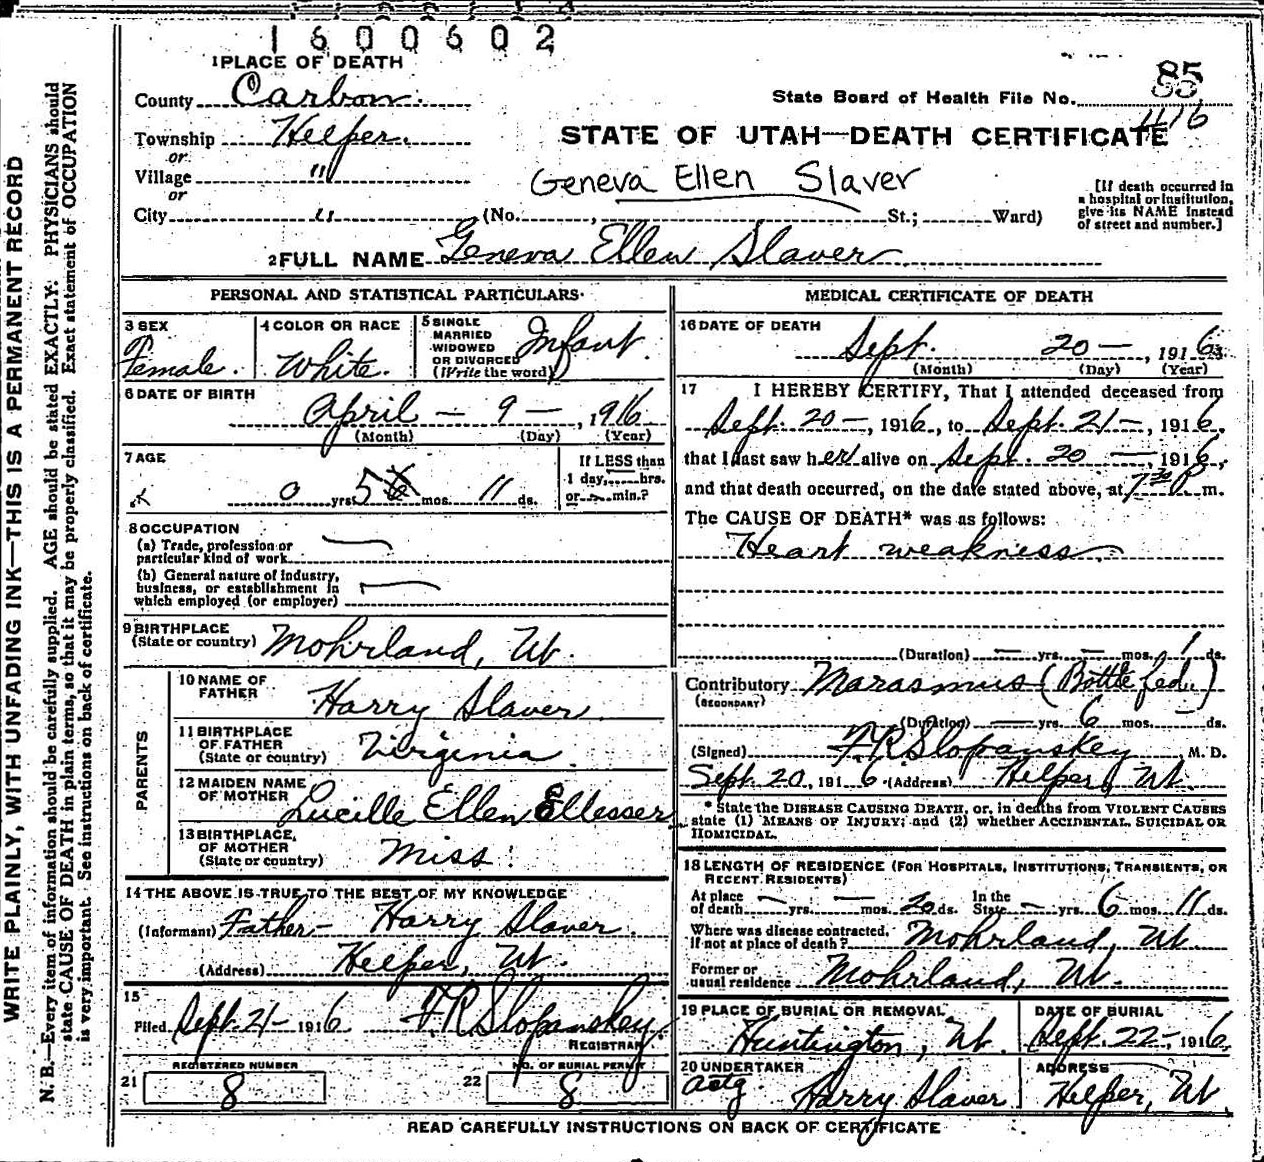 1600602
1 PLACE OF DEATH
County Carbon.
Township Helper.
or
Village "
or
City "
(No. , St.; Ward)
85
State Board of Health File No.
416
STATE OF UTAH—DEATH CERTIFICATE
Geneva Ellen Slaver
[If death occurred in
a hospital or institution,
give its NAME instead
of street and number.]
2 FULL NAME Geneva Ellen Slaver
PERSONAL AND STATISTICAL PARTICULARS
3 SEX
Female.
4 COLOR OR RACE
White.
5 SINGLE
MARRIED
WIDOWED
OR DIVORCED
(Write the word)
Infant.
6 DATE OF BIRTH
April — 9 — , 1916
(Month) (Day) (Year)
7 AGE
0 yrs. 5 mos. 11 ds.
If LESS than
1 day, hrs.
or min.?
8 OCCUPATION
(a) Trade, profession or
particular kind of work
(b) General nature of industry,
business, or establishment in
which employed (or employer)
9 BIRTHPLACE
(State or country) Mohrland, Ut.
PARENTS
10 NAME OF
FATHER Harry Slaver
11 BIRTHPLACE
OF FATHER
(State or country) Virginia
12 MAIDEN NAME
OF MOTHER Lucille Ellen Ellesser
13 BIRTHPLACE
OF MOTHER
(State or country) Miss.
14 THE ABOVE IS TRUE TO THE BEST OF MY KNOWLEDGE
(Informant) Father - Harry Slaver.
(Address) Helper, Ut.
15
Filed Sept. 21 - 1916 F.R. Slopanskey
REGISTRAR
REGISTERED NUMBER
21 8
NO. OF BURIAL PERMIT
22 8
MEDICAL CERTIFICATE OF DEATH
16 DATE OF DEATH
Sept. 20 — , 1916
(Month) (Day) (Year)
17 I HEREBY CERTIFY, That I attended deceased from
Sept. 20 — , 1916, to Sept. 21 — , 1916,
that I last saw her alive on Sept. 20 — , 1916,
and that death occurred, on the date stated above, at 7 30 P m.
The CAUSE OF DEATH* was as follows:
Heart weakness
(Duration) — yrs. — mos. 1 ds.
Contributory Marasmus (Bottle fed.)
(SECONDARY)
(Duration) — yrs. 6 mos. — ds.
(Signed) F.R. Slopanskey M. D.
Sept. 20, 1916 (Address) Helper, Ut.
* State the DISEASE CAUSING DEATH, or, in deaths from VIOLENT CAUSES
state (1) MEANS OF INJURY; and (2) whether ACCIDENTAL, SUICIDAL OR
HOMICIDAL.
18 LENGTH OF RESIDENCE (FOR HOSPITALS, INSTITUTIONS, TRANSIENTS, OR
RECENT RESIDENTS)
At place
of death — yrs. — mos. 20 ds.
In the
State — yrs. 6 mos. 11 ds.
Where was disease contracted,
if not at place of death? Mohrland, Ut.
Former or
usual residence Mohrland, Ut.
19 PLACE OF BURIAL OR REMOVAL
Huntington, Ut.
DATE OF BURIAL
Sept. 22 - , 1916.
20 UNDERTAKER
actg Harry Slaver
ADDRESS
Helper, Ut
READ CAREFULLY INSTRUCTIONS ON BACK OF CERTIFICATE
WRITE PLAINLY, WITH UNFADING INK—THIS IS A PERMANENT RECORD
N. B.—Every item of information should be carefully supplied. AGE should be stated EXACTLY. PHYSICIANS should
state CAUSE OF DEATH in plain terms, so that it may be properly classified. Exact statement of OCCUPATION
is very important. See instructions on back of certificate.